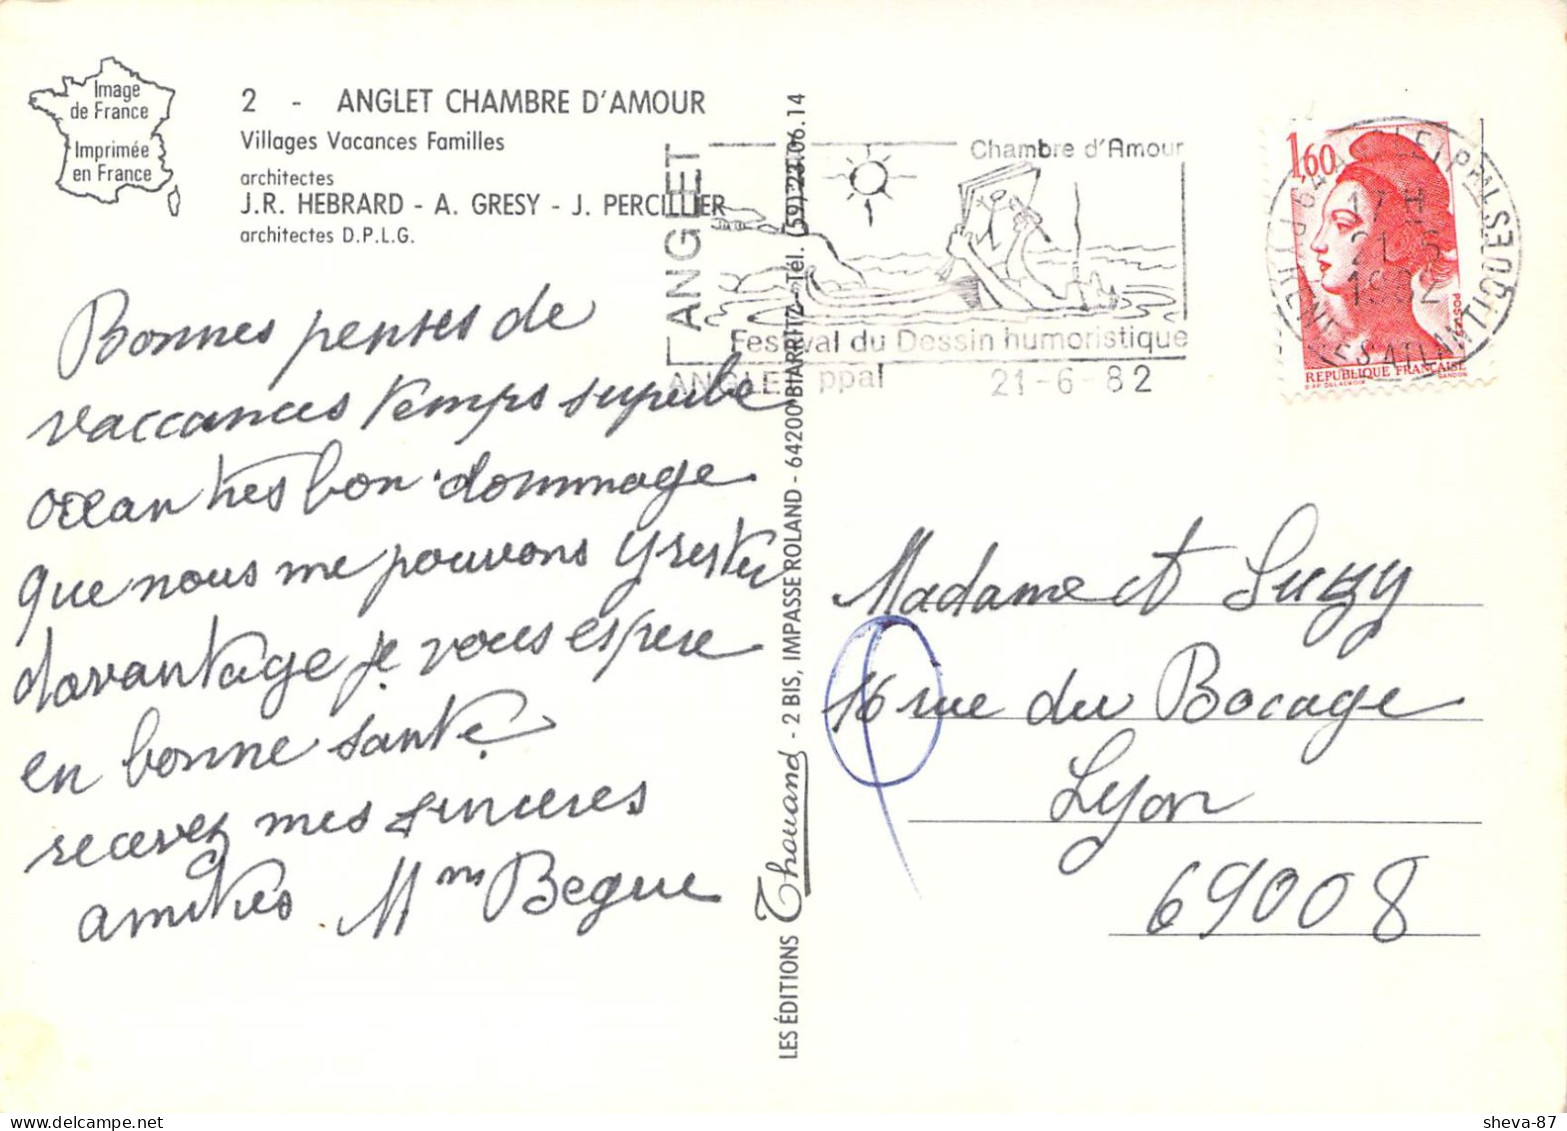 Image
de France
Imprimée
en France
2 - ANGLET CHAMBRE D'AMOUR
Villages Vacances Familles
architectes
J.R. HEBRARD - A. GRESY - J. PERCILLIER
architectes D.P.L.G.
Bonnes penses de
vaccances temps superbe
ocean tres bon dommage
que nous me pouvons y rester
davantage je vous espere
en bonne sante
recevez mes sinceres
amities Mme Begue
LES ÉDITIONS Thouand - 2 BIS, IMPASSE ROLAND - 64200 BIARRITZ - Tél. (59) 23.06.14
ANGLET
Chambre d'Amour
Festival du Dessin humoristique
ANGLET ppal 21-6-82
1,60
POSTES
REPUBLIQUE FRANÇAISE
64 ANGLET PPAL
17 H
21 - 6
1982
PYRENEES ATLANTIQUES
Madame et Suzy
16 rue du Bocage
Lyon
69008
sheva-87